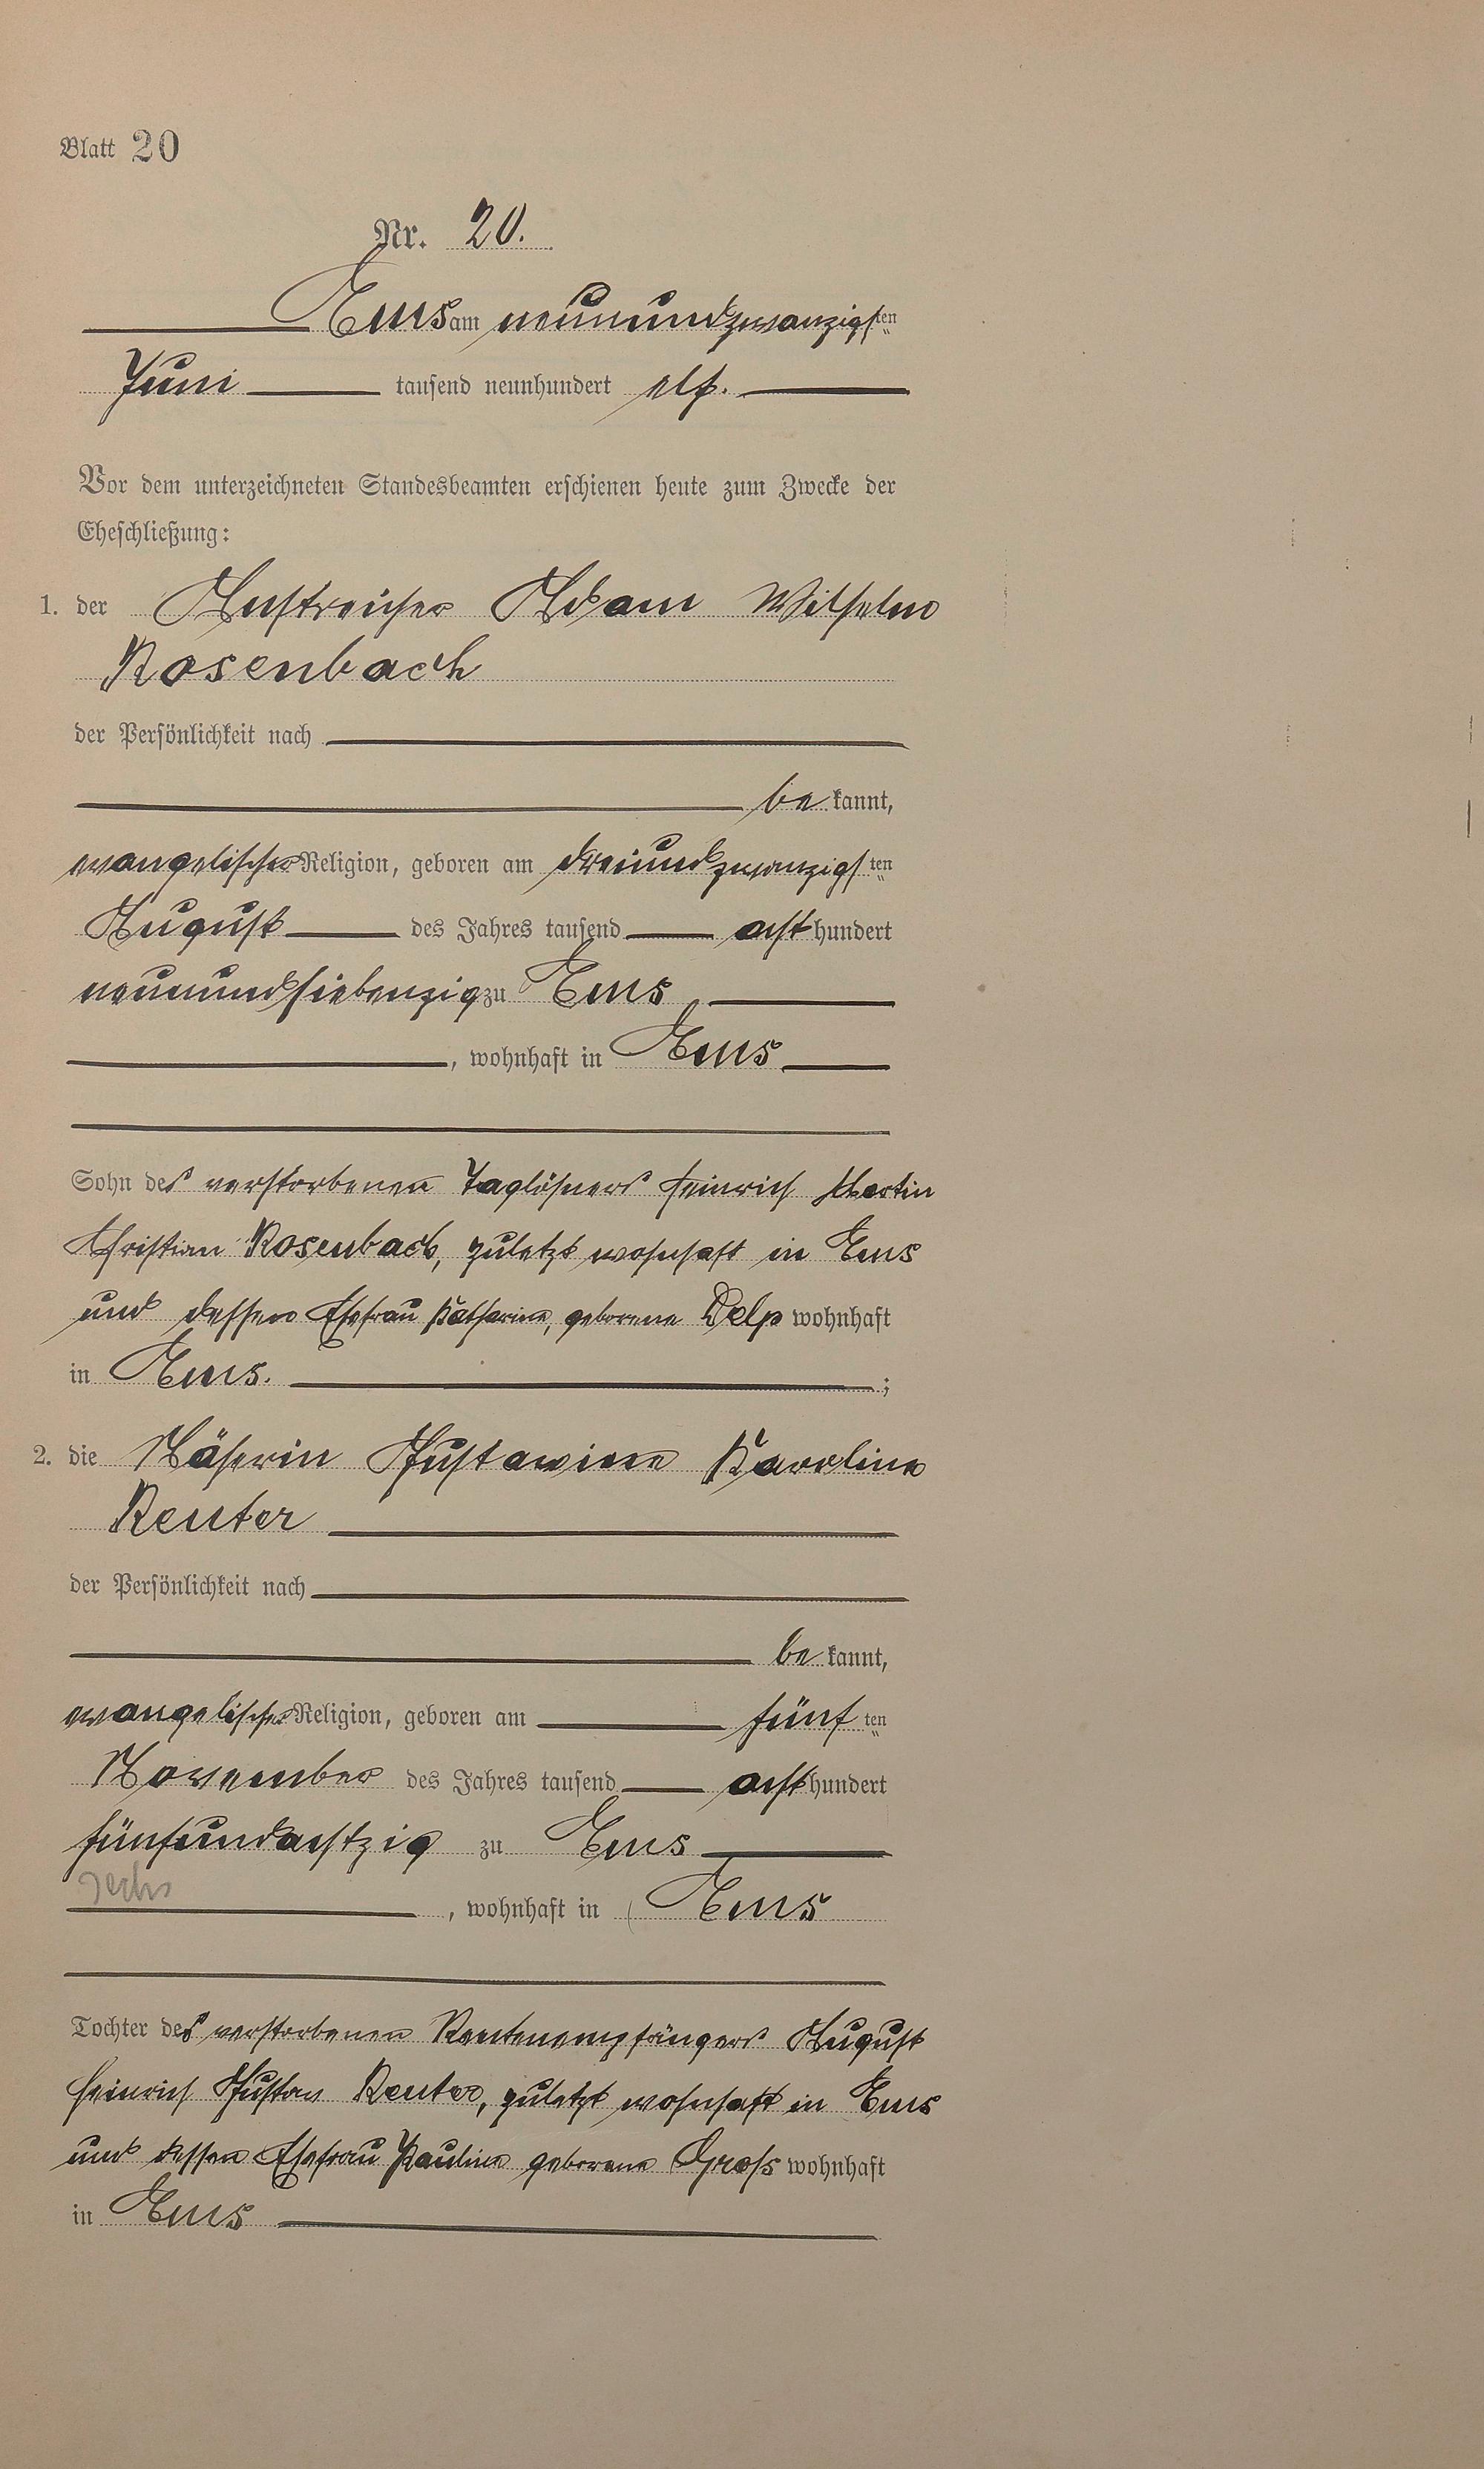 Blatt 20
Nr. 20.
Ems am neunundzwanzigsten
Juni tausend neunhundert elf.
Vor dem unterzeichneten Standesbeamten erschienen heute zum Zwecke der
Eheschließung:
1. der Anstreicher Adam Wilhelm
Rosenbach
der Persönlichkeit nach
be kannt,
evangelischer Religion, geboren am dreiundzwanzigsten
August des Jahres tausend acht hundert
neunundsiebenzig zu Ems
, wohnhaft in Ems
Sohn des verstorbenen Taglöhners Heinrich Martin
Christian Rosenbach, zuletzt wohnhaft in Ems
und dessen Ehefrau Katharine, geborene Delp wohnhaft
in Ems. ;
2. die Näherin Gustawine Karoline
Reuter
der Persönlichkeit nach
be kannt,
evangelischer Religion, geboren am fünf ten
November des Jahres tausend acht hundert
fünfundachtzig zu Ems
sechs , wohnhaft in Ems
Tochter des verstorbenen Rentenempfängers August
Heinrich Gustav Reuter, zuletzt wohnhaft in Ems
und dessen Ehefrau Pauline geborene Groß wohnhaft
in Ems